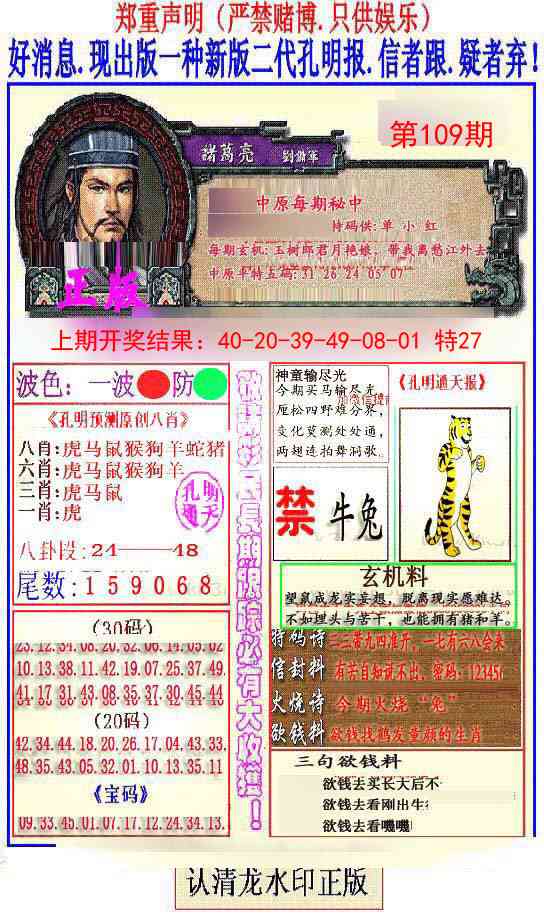 郑重声明（严禁赌博.只供娱乐）
好消息.现出版一种新版二代孔明报.信者跟.疑者弃！
諸葛亮
第109期
中原每期秘中
持码供:单 小 红
每期玄机:玉树郎君月艳娘，带我离愁江外去
中原平特五码:31 26 24 05 07
正版
上期开奖结果：40-20-39-49-08-01 特27
波色：一波 防
《孔明预测原创八肖》
八肖:虎马鼠猴狗羊蛇猪
六肖:虎马鼠猴狗羊
三肖:虎马鼠
一肖:虎
孔明
通天
八卦段:24——48
尾数:159068
(30码)
23.12.34.08.20.32.06.14.05.02
10.13.38.11.42.19.07.25.37.49
41.17.31.43.08.35.37.30.45.44
(20码)
42.34.44.18.20.26.17.04.43.33.
48.35.43.05.32.01.10.13.35.11
《宝码》
09.33.45.01.07.17.12.24.34.13.
神童输尽光
今期买马输尽光
厘松四野难分界,
变化莫测处处通,
两翅连拍舞洞歌.
《孔明通天报》
禁 牛兔
玄机料
望鼠成龙实妄想，脱离现实愿难达。
不如埋头与苦干，也能拥有猪和羊。
特码诗 二三带九四准开，一七有六八会来
信封料 有苦自知说不出，密码：123456
火烧诗 今期火烧“兔”
欲钱料 欲钱找鹤发童颜的生肖
三句欲钱料
欲钱去买长大后不
欲钱去看刚出生
欲钱去看嘰嘰
认清龙水印正版